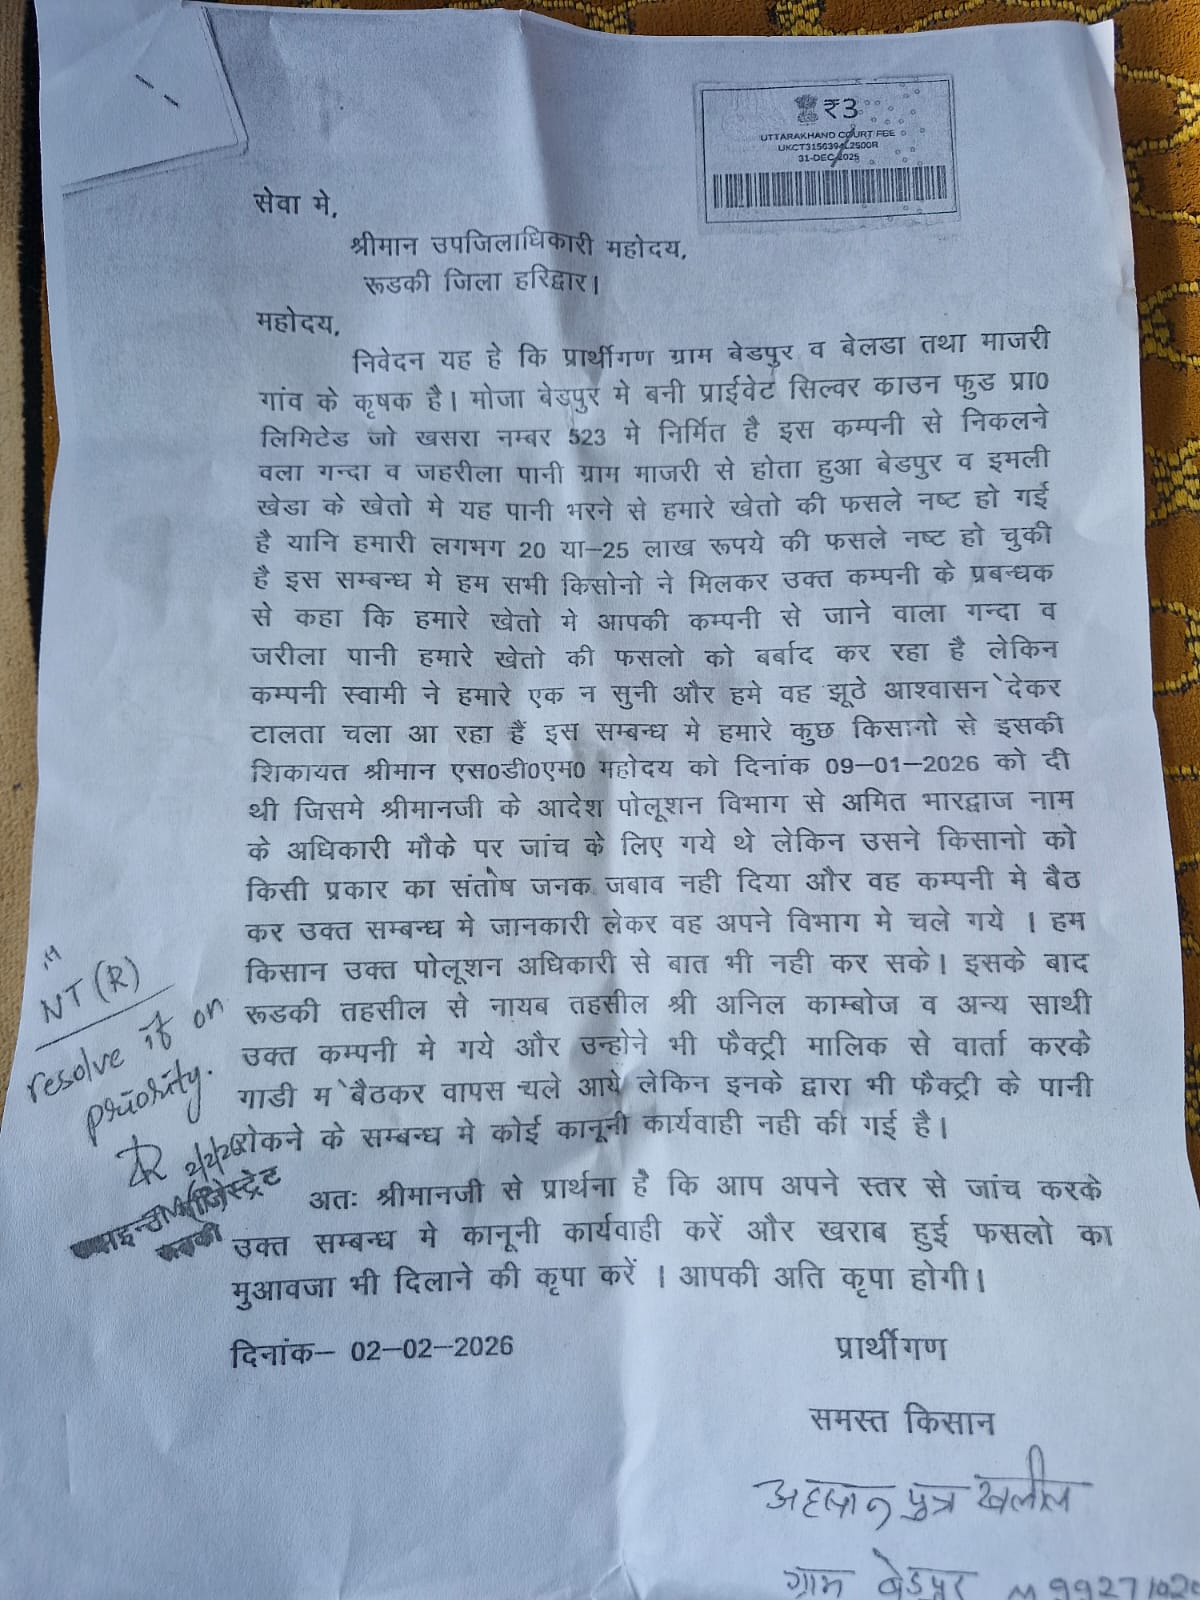 ₹3
UTTARAKHAND COURT FEE
31-DEC-2025
सेवा मे,
श्रीमान उपजिलाधिकारी महोदय,
रूडकी जिला हरिद्वार।
महोदय,
निवेदन यह हे कि प्रार्थीगण ग्राम बेडपुर व बेलडा तथा माजरी
गांव के कृषक है। मोजा बेडपुर मे बनी प्राईवेट सिल्वर काउन फुड प्रा0
लिमिटेड जो खसरा नम्बर 523 मे निर्मित है इस कम्पनी से निकलने
वला गन्दा व जहरीला पानी ग्राम माजरी से होता हुआ बेडपुर व इमली
खेडा के खेतो मे यह पानी भरने से हमारे खेतो की फसले नष्ट हो गई
है यानि हमारी लगभग 20 या–25 लाख रूपये की फसले नष्ट हो चुकी
है इस सम्बन्ध मे हम सभी किसोनो ने मिलकर उक्त कम्पनी के प्रबन्धक
से कहा कि हमारे खेतो मे आपकी कम्पनी से जाने वाला गन्दा व
जरीला पानी हमारे खेतो की फसलो को बर्बाद कर रहा है लेकिन
कम्पनी स्वामी ने हमारे एक न सुनी और हमे वह झूठे आश्वासन`देकर
टालता चला आ रहा हैं इस सम्बन्ध मे हमारे कुछ किसानो से इसकी
शिकायत श्रीमान एस0डी0एम0 महोदय को दिनांक 09–01–2026 को दी
थी जिसमे श्रीमानजी के आदेश पोलूशन विभाग से अमित भारद्वाज नाम
के अधिकारी मौके पर जांच के लिए गये थे लेकिन उसने किसानो को
किसी प्रकार का संतोष जनक जबाव नही दिया और वह कम्पनी मे बैठ
कर उक्त सम्बन्ध मे जानकारी लेकर वह अपने विभाग मे चले गये । हम
किसान उक्त पोलूशन अधिकारी से बात भी नही कर सके। इसके बाद
रूडकी तहसील से नायब तहसील श्री अनिल काम्बोज व अन्य साथी
उक्त कम्पनी मे गये और उन्होने भी फैक्ट्री मालिक से वार्ता करके
गाडी म`बैठकर वापस चले आये लेकिन इनके द्वारा भी फैक्ट्री के पानी
रोकने के सम्बन्ध मे कोई कानूनी कार्यवाही नही की गई है।
NT (R)
resolve it on
priority.
2/2/26
अतः श्रीमानजी से प्रार्थना है कि आप अपने स्तर से जांच करके
उक्त सम्बन्ध मे कानूनी कार्यवाही करें और खराब हुई फसलो का
मुआवजा भी दिलाने की कृपा करें । आपकी अति कृपा होगी।
दिनांक– 02–02–2026
प्रार्थीगण
समस्त किसान
अहसान पुत्र खलील
ग्राम बेडपुर